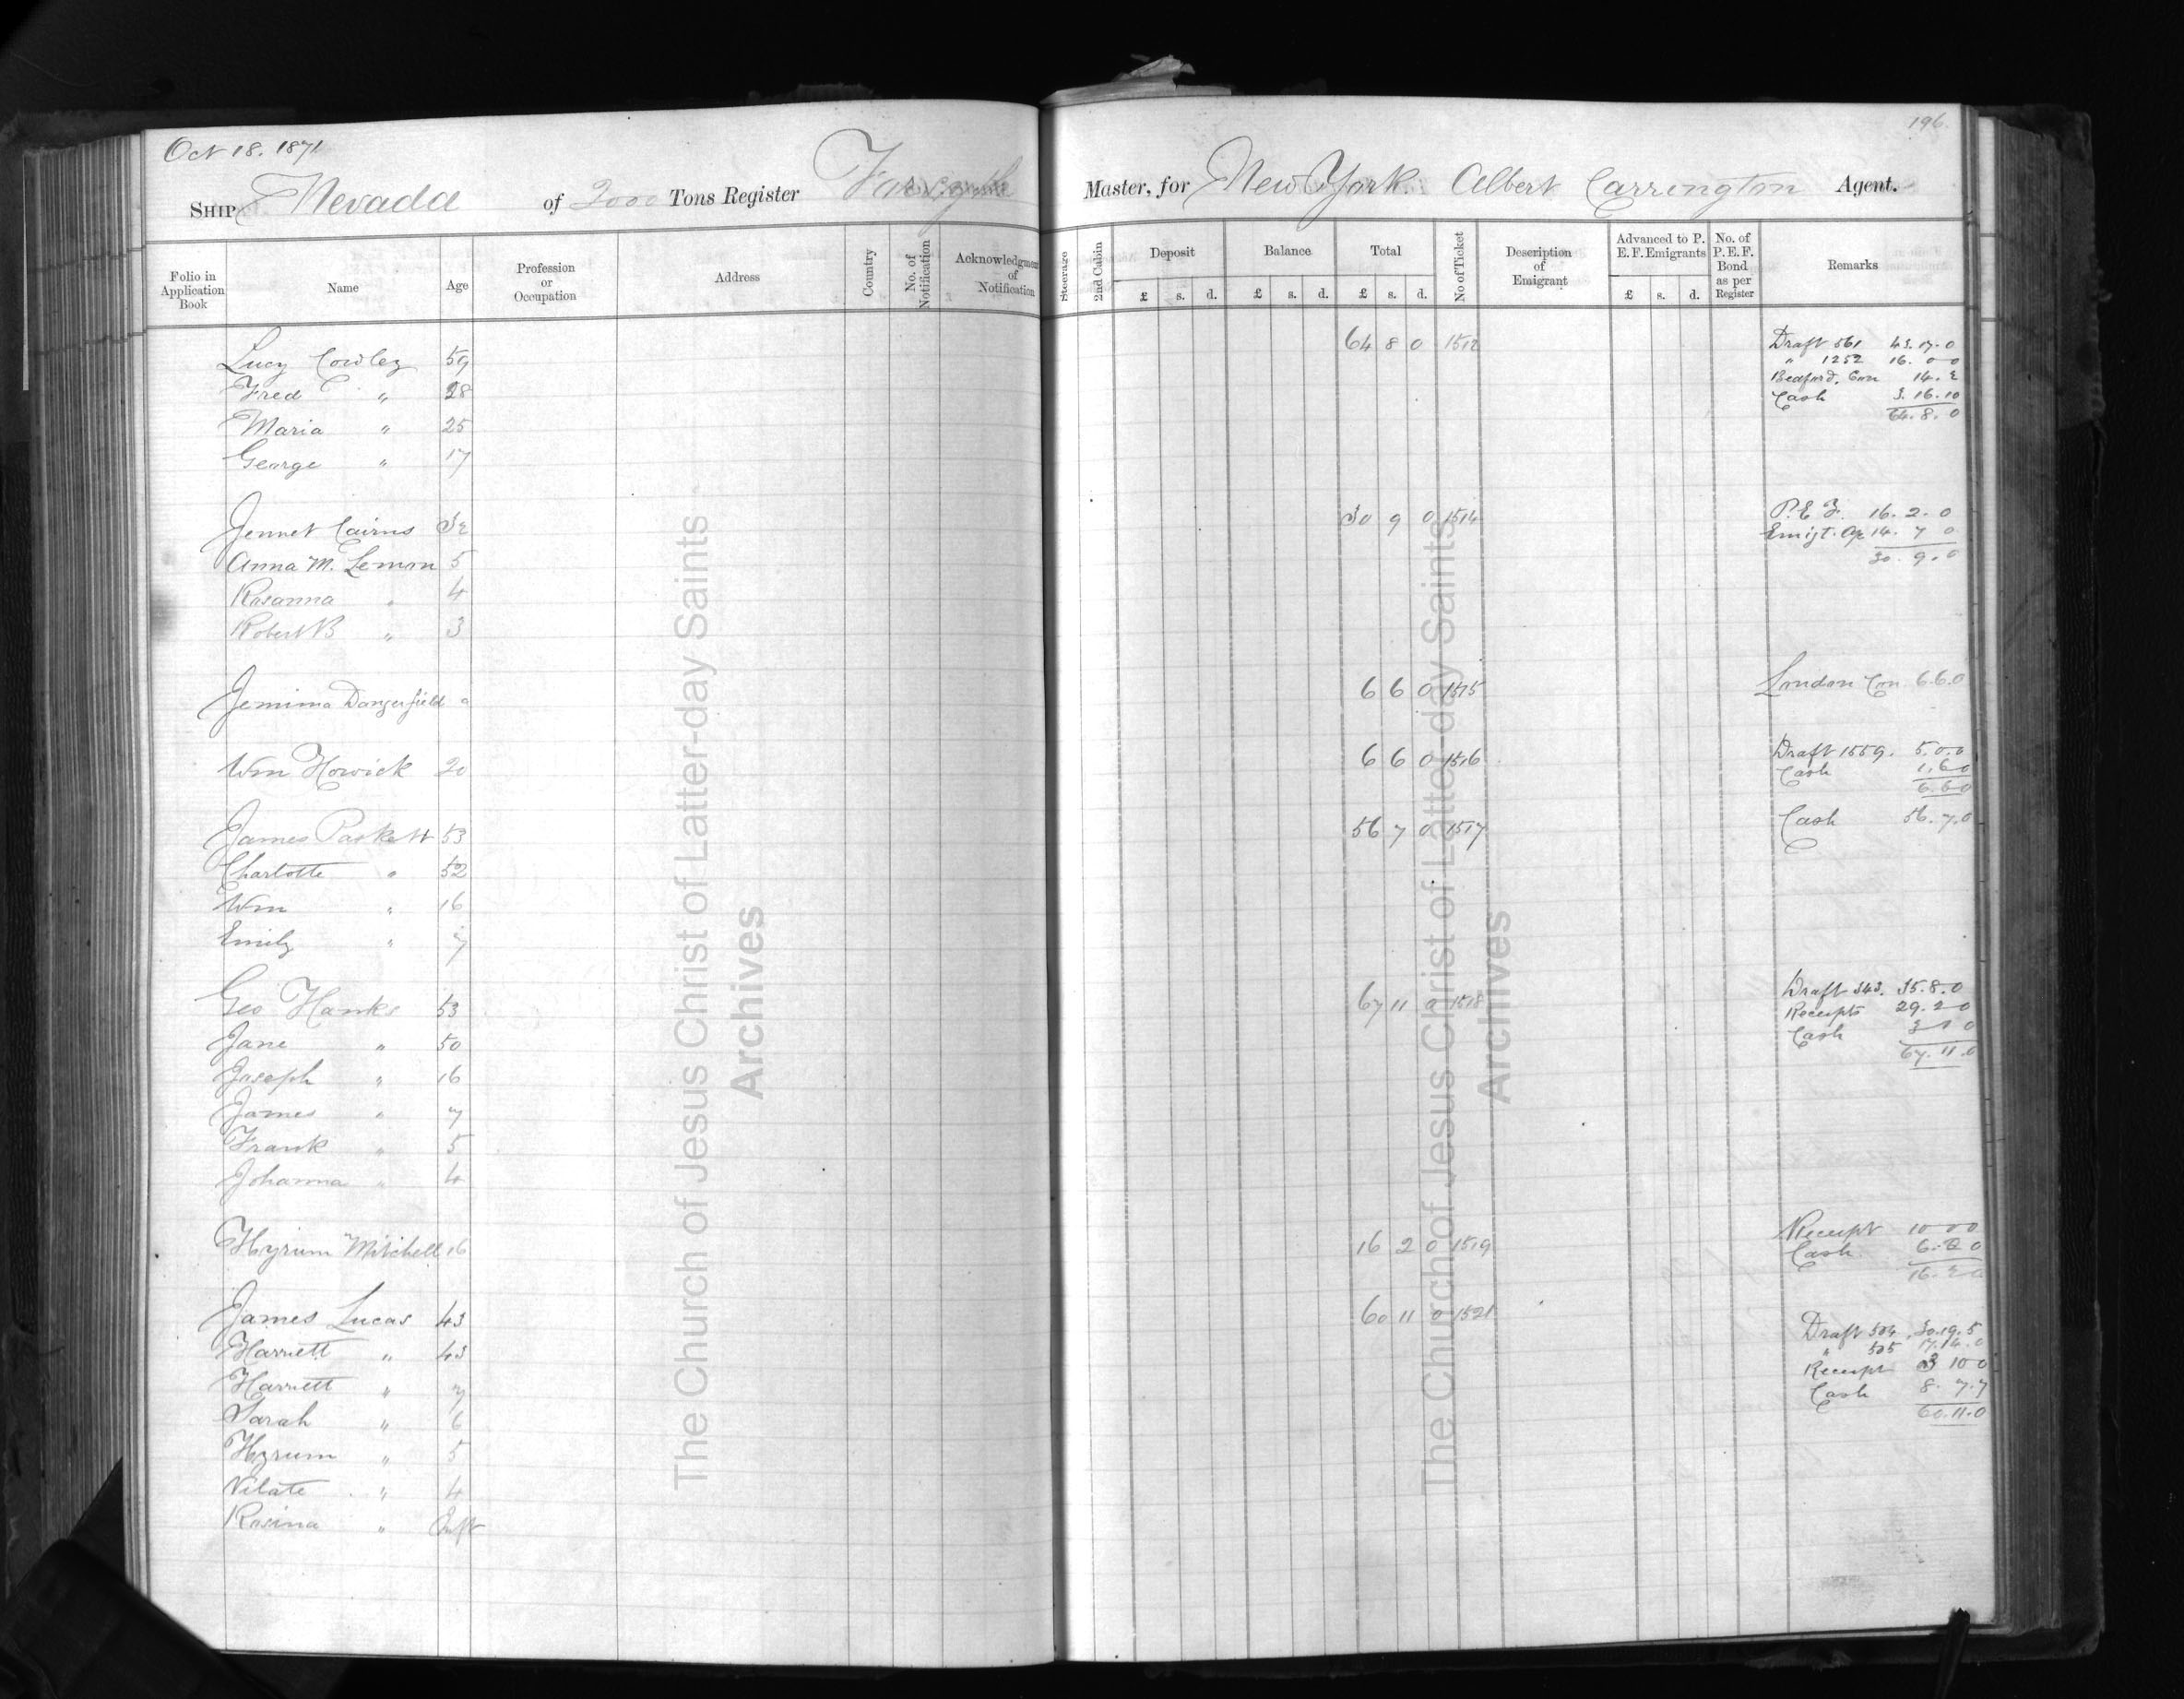 196.
Oct 18. 1871
SHIP Nevada of 2000 Tons Register Forsyth Master, for New York. Albert Carrington Agent.
Folio in Application Book Name Age Profession or Occupation Address Country No. of Notification Acknowledgment of Notification Steerage 2nd Cabin Deposit Balance Total No of Ticket Description of Emigrant Advanced to P. E. F. Emigrants No. of P. E. F. Bond as per Register Remarks
£ s. d. £ s. d. £ s. d. £ s. d.
Lucy Cowley 59 64 8 0 1512 Draft 561 43.17.0
Fred " 28 " 1252 16. 0 0
Bedford. Con 14. 2
Cash 3. 16. 10
Maria " 25 64. 8. 0
George " 17
Jennet Cairns 32 30 9 0 1514 P. E F. 16. 2. 0
Emigt. a/c 14. 7 0
Anna M. Lemon 5 30. 9. 0
Rosanna " 4
Robert B " 3
Jemima Dangerfield 6 6 0 1515 London Con 6.6.0
Wm Howick 20 6 6 0 1516 Draft 1559. 5.0.0
Cash 1.6 0
6.6 0
James Paskett 53 56 7 0 1517 Cash 56.7.0
Charlotte " 52
Wm " 16
Emily " 7
Geo Hanks 53 67 11 0 1518 Draft 343. 35.8.0
Receipts 29.2 0
Jane " 50 Cash 3 1 0
67. 11. 0
Joseph " 16
James " 7
Frank " 5
Johanna " 4
Hyrum Mitchell 16 16 2 0 1519 Receipt 10 0 0
Cash 6. 2 0
16. 2 0
James Lucas 43 60 11 0 1521 Draft 504 30.19.5
Harriett " 43 " 505 17.14.0
Receipt 3 10 0
Harriett " 7 Cash 8. 7. 7
Sarah " 6 60.11.0
Hyrum " 5
Vilate " 4
Rosina " Inft
The Church of Jesus Christ of Latter-day Saints
Archives
The Church of Jesus Christ of Latter-day Saints
Archives